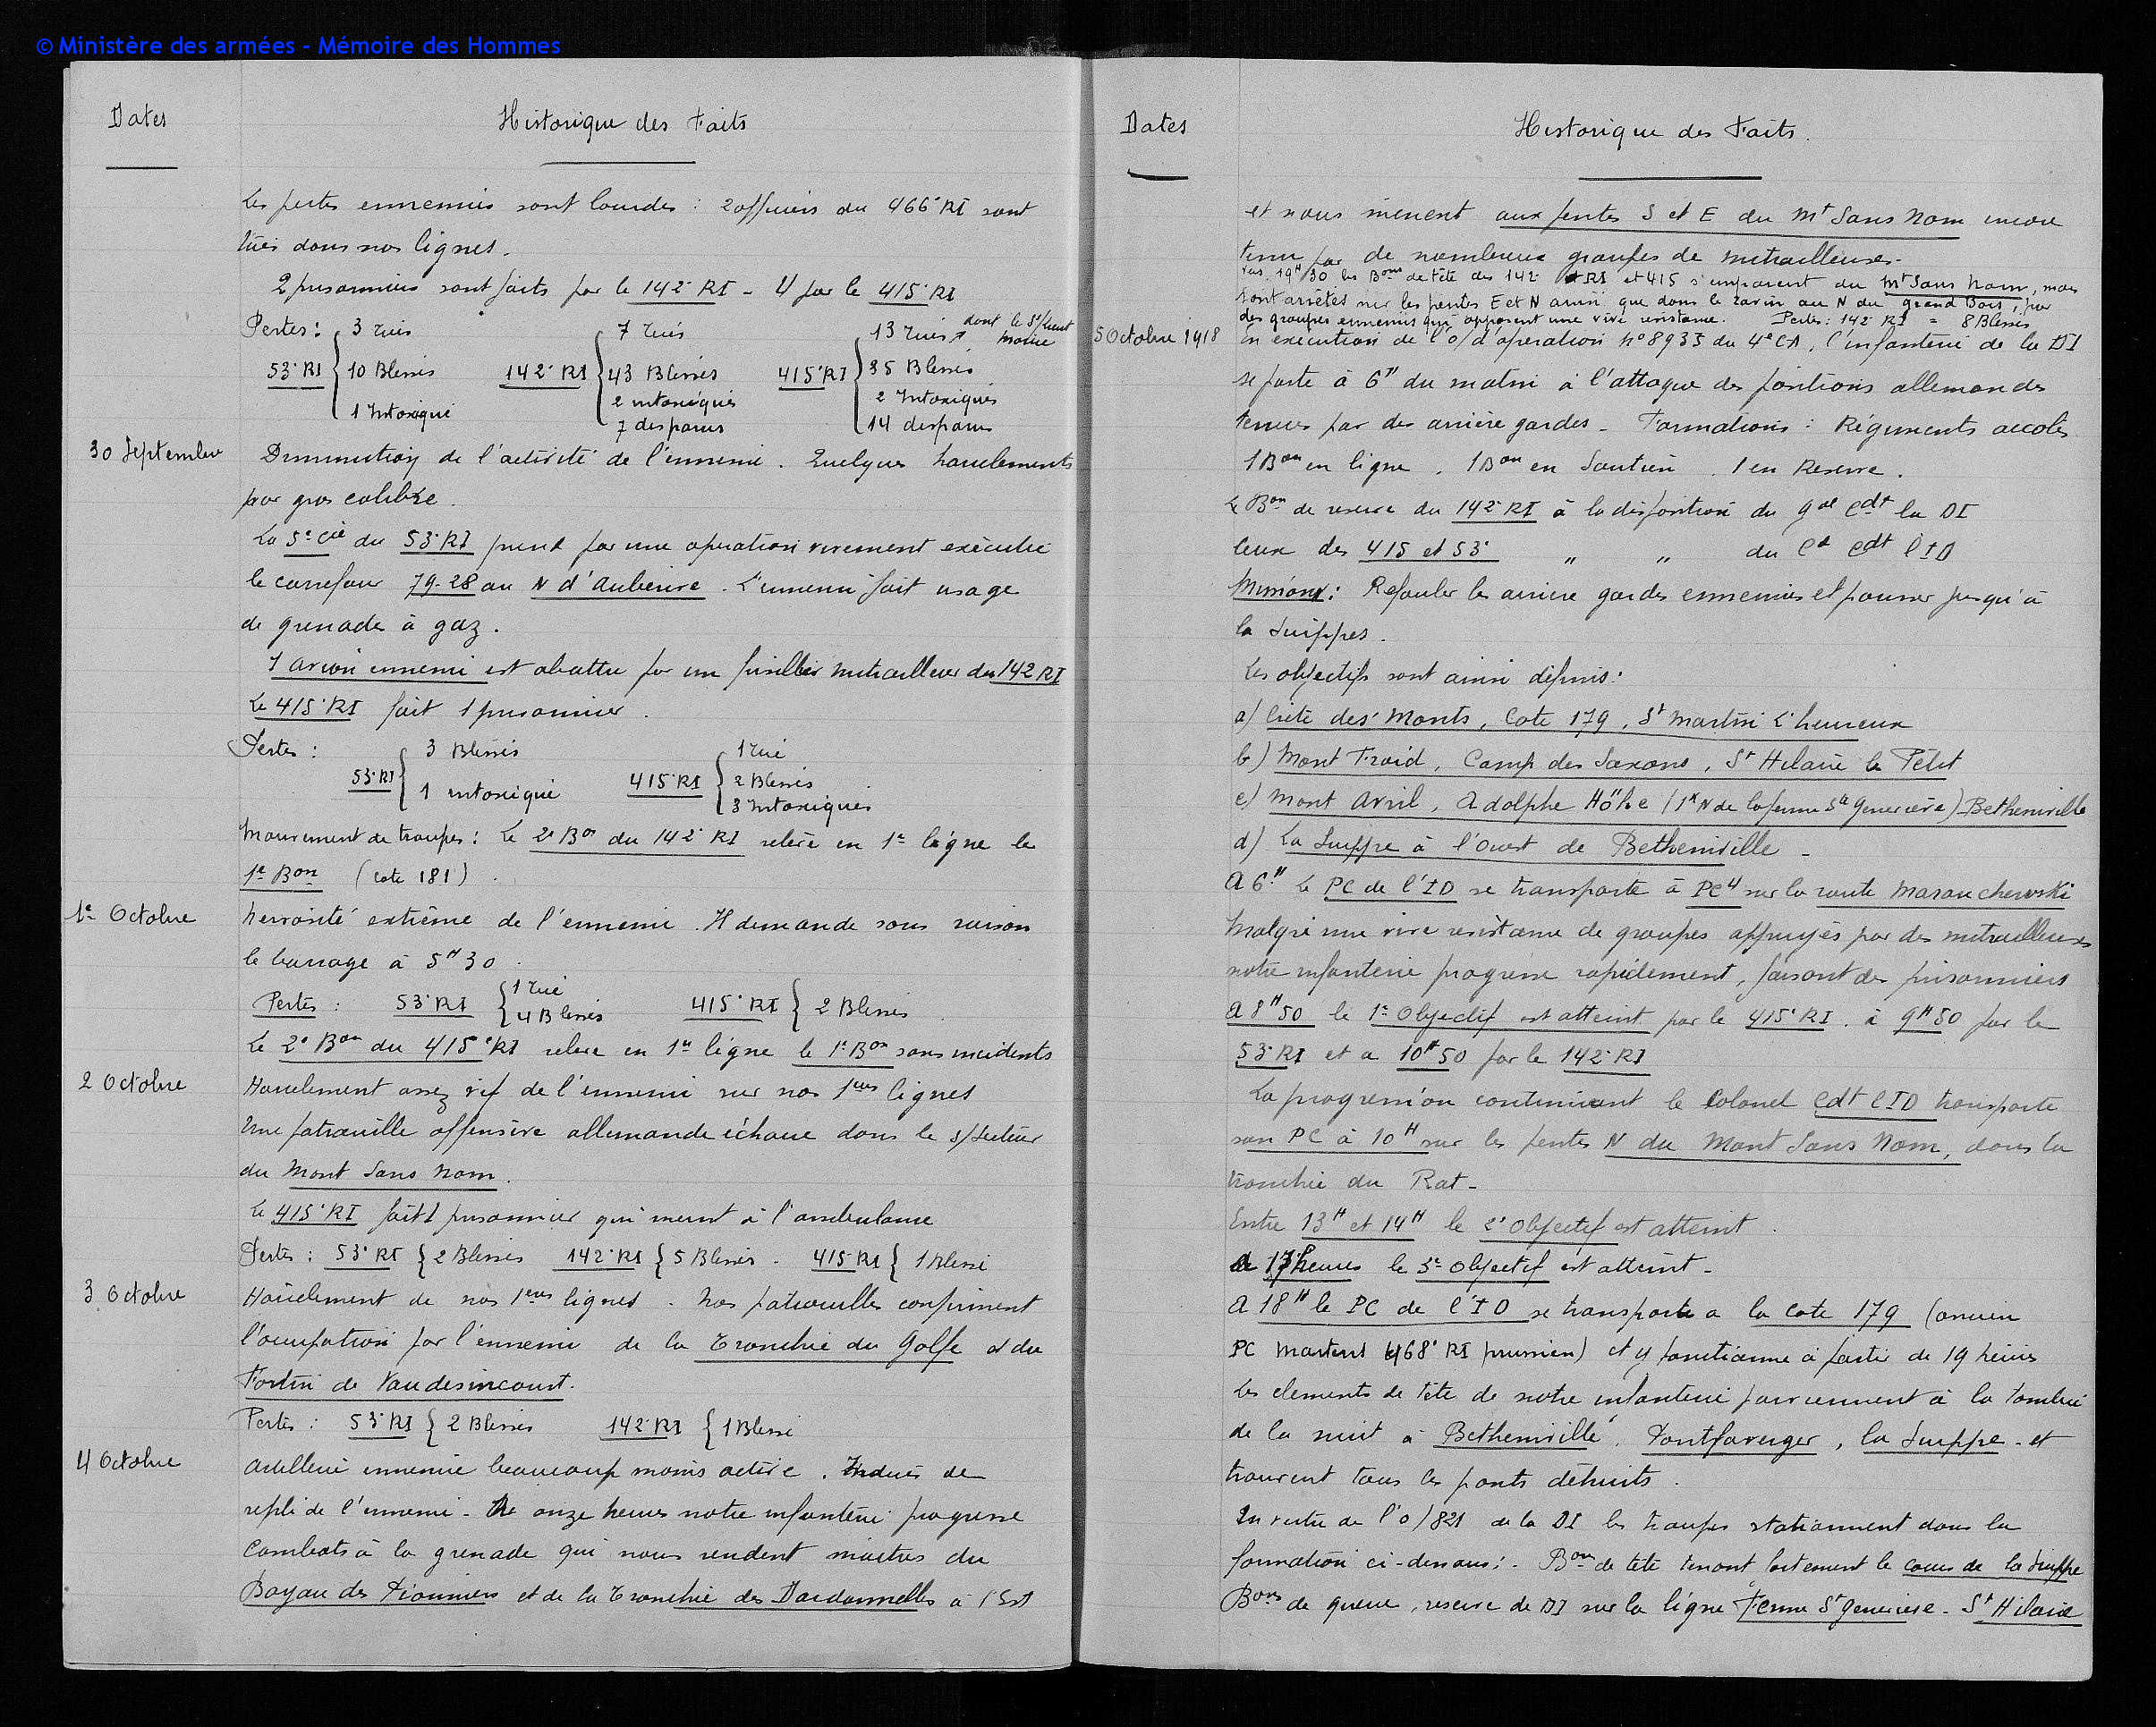 © Ministère des armées - Mémoire des Hommes
Dates
Historique des Faits
Les pertes ennemies sont lourdes : 2 officiers du 466e RI sont
tués dans nos lignes.
2 prisonniers sont faits par le 142e RI - 4 par le 415e RI
Pertes : 53e RI { 3 Tués
10 Blessés
1 Intoxiqué
142e RI { 7 Tués
43 Blessés
2 intoxiqués
7 disparus
415e RI { 13 Tués dont le S/Lieut
35 Blessés
2 Intoxiqués
14 disparus
30 Septembre
Diminution de l'activité de l'ennemi. Quelques harcèlements
par gros calibre.
La 5e Cie du 53e RI prend par une opération vivement exécutée
le carrefour 79-28 au N d'Auberive. L'ennemi fait usage
de grenades à gaz.
1 avion ennemi est abattu par un fusilier mitrailleur du 142 RI
Le 415e RI fait 1 prisonnier.
Pertes : 53e RI { 3 Blessés
1 intoxiqué
415e RI { 1 Tué
2 Blessés
3 Intoxiqués
Mouvement de troupes : Le 2e Bon du 142e RI relève en 1e ligne le
1e Bon (cote 181).
1er Octobre
Nervosité extrême de l'ennemi. Il demande sans raison
le barrage à 5H30.
Pertes : 53e RI { 1 Tué
4 Blessés
415e RI { 2 Blessés
Le 2e Bon du 415e RI relève en 1re ligne le 1er Bon sans incidents
2 Octobre
Harcèlement assez vif de l'ennemi sur nos 1ères lignes
Une patrouille offensive allemande échoue dans le s/secteur
du Mont Sans Nom.
Le 415e RI fait 1 prisonnier qui meurt à l'ambulance
Pertes : 53e RI { 2 Blessés 142e RI { 5 Blessés - 415e RI { 1 Blessé
3 Octobre
Harcèlement de nos 1ères lignes. Nos patrouilles confirment
l'occupation par l'ennemi de la Tranchée du Golfe et du
Fortin de Vaudesincourt.
Pertes : 53e RI { 2 Blessés 142e RI { 1 Blessé
4 Octobre
Artillerie ennemie beaucoup moins active. Indices de
repli de l'ennemi - onze heures notre infanterie progresse
Combats à la grenade qui nous rendent maitres du
Boyau des Pionniers et de la Tranchée des Dardannelles à l'Est
Dates
Historique des Faits.
et nous mènent aux pentes S et E du Mt Sans Nom encore
tenu par de nombreux groupes de mitrailleuses.
Vers 19H30 les Bons de tête des 142 RI et 415 s'emparent du Mt Sans Nom, mais
sont arrêtés sur les pentes E et N ainsi que dans le ravin au N du Grand Bois, par
des groupes ennemis qui opposent une vive résistance. Pertes : 142e RI = 8 Blessés
5 Octobre 1918
En exécution de l'o/ d'opération No 8935 du 4e CA, l'infanterie de la DI
se porte à 6H du matin à l'attaque des positions allemandes
tenues par des arrière gardes - Formations : Régiments accolés
1 Bon en ligne, 1 Bon en Soutien, 1 en Réserve.
Le Bon de réserve du 142e RI à la disposition du Gal Cdt la DI
Ceux des 415 et 53e " " du Cel Cdt l'ID
Missions : Refouler les arrière gardes ennemies et pousser jusqu'à
la Suippes.
Les objectifs sont ainsi définis :
a) Crête des Monts, Cote 179, St Martin L'heureux
b) Mont Froid, Camp des Saxons, St Hilaire le Petit
c) Mont Avril, Adolphe Höhe (1K N de la ferme Ste Geneviève) - Betheniville
d) La Suippe à l'Ouest de Betheniville -
A 6H le PC de l'ID se transporte à PC4 sur la route Maraucherwski
Malgré une vive résistance de groupes appuyés par des mitrailleuses
notre infanterie progresse rapidement, faisant des prisonniers
A 8H50 le 1er Objectif est atteint par le 415e RI, à 9H50 par le
53e RI et à 10H50 par le 142e RI
La progression continuant le Colonel Cdt l'ID transporte
son PC à 10H sur les pentes N du Mont Sans Nom, dans la
tranchée du Rat -
Entre 13H et 14H le 2e Objectif est atteint.
A 17 heures le 3e Objectif est atteint -
A 18H le PC de l'ID se transporte à la cote 179 (ancien
PC Martens 468e RI prussien) et y fonctionne à partir de 19 heures
Les éléments de tête de notre infanterie parviennent à la tombée
de la nuit à Betheniville, Pontfaverger, la Suippe - et
trouvent tous les ponts détruits.
En vertu de l'o/821 de la DI les troupes stationnent dans la
formation ci-dessous : - Bons de tête tenant fortement le cours de la Suippe
Bons de queue, réserve de DI sur la ligne Ferme Ste Geneviève - St Hilaire